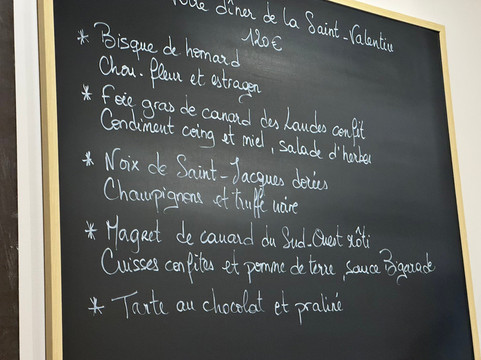 Votre dîner de la Saint-Valentin
120€
* Bisque de homard
Chou-fleur et estragon
* Foie gras de canard des Landes confit
Condiment coing et miel, salade d'herbes
* Noix de Saint-Jacques dorées
Champignons et truffe noire
* Magret de canard du Sud-Ouest rôti
Cuisses confites et pomme de terre, sauce Bigarade
* Tarte au chocolat et praliné